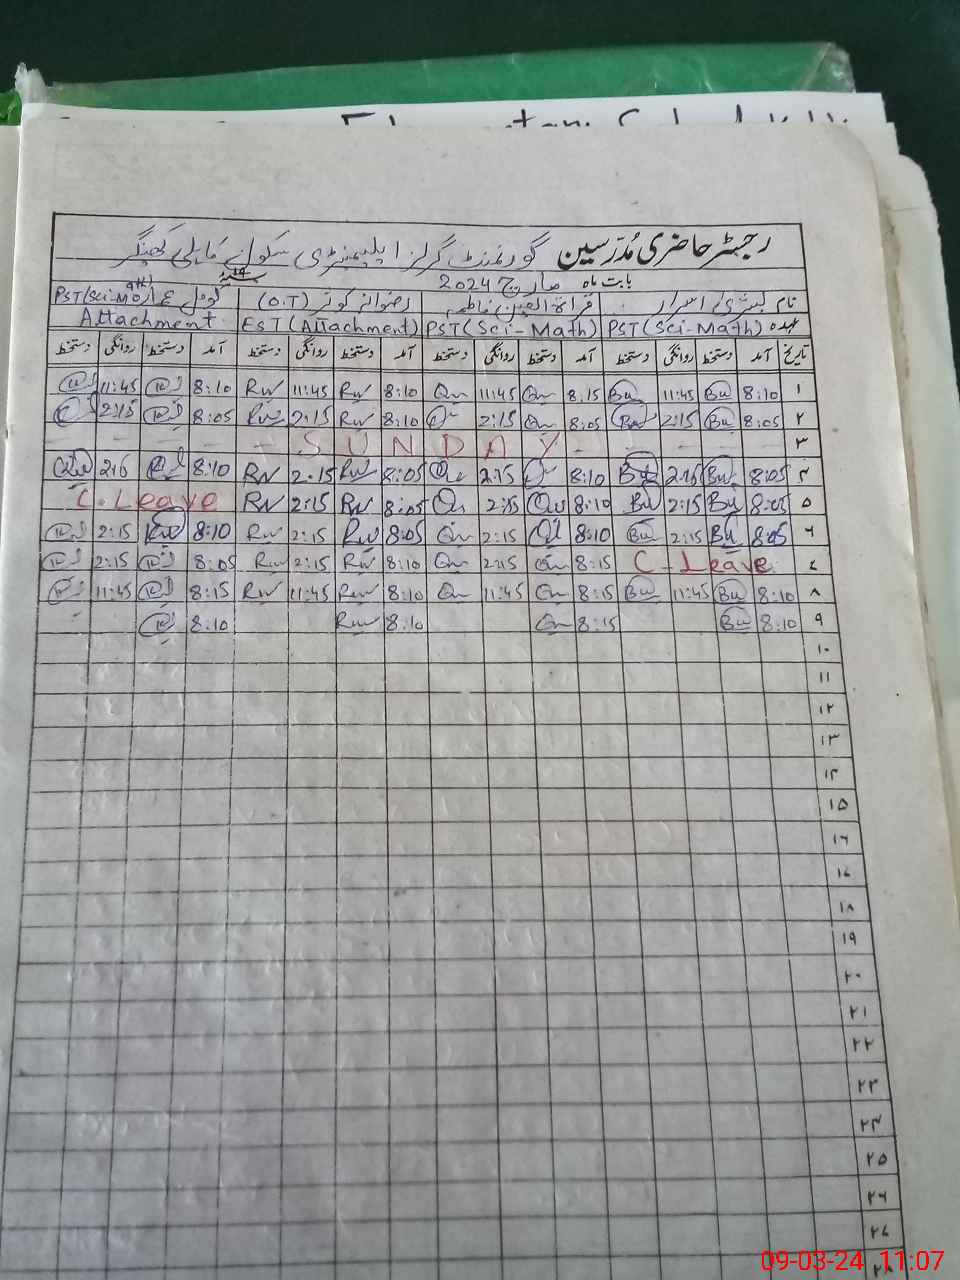 رجسٹر حاضری مُدرسین گورنمنٹ گرلز ایلیمنٹری سکول
بابت ماہ مارچ 2024
نام بشریٰ اسرار قراۃ العین فاطمہ رضوانہ کوثر (O.T) کومل
عہدہ PST (Sci-Math) PST (Sci-Math) EST (Attachment) Attachment
تاریخ آمد دستخط روانگی دستخط آمد دستخط روانگی دستخط آمد دستخط روانگی دستخط آمد دستخط روانگی دستخط
۱ 8:10 Bu 11:45 Bu 8:15 Qu 11:45 Qu 8:10 Rw 11:45 Rw 8:10 11:45
۲ 8:05 Bu 2:15 Bu 8:05 Qu 2:15 8:10 Rw 2:15 Rw 8:05 2:15
۳ SUNDAY
۴ 8:05 Bu 2:15 Bu 8:10 2:15 Qu 8:05 Rw 2:15 Rw 8:10
۵ 8:05 Bu 2:15 Bu 8:10 Qu 2:15 Qu 8:05 Rw 2:15 Rw C. Leave
۶ 8:05 Bu 2:15 Bu 8:10 Qu 2:15 Qu 8:05 Rw 2:15 Rw 8:10 2:15
۷ C-Leave 8:15 Qu 2:15 Qu 8:10 Rw 2:15 Rw 8:05 2:15
۸ 8:10 Bu 11:45 Bu 8:15 Qu 11:45 Qu 8:10 Rw 11:45 Rw 8:15 11:45
۹ 8:10 Bu 8:15 Qu 8:10 Rw 8:10
۱۰
۱۱
۱۲
۱۳
۱۴
۱۵
۱۶
۱۷
۱۸
۱۹
۲۰
۲۱
۲۲
۲۳
۲۴
۲۵
۲۶
۲۷
۲۸
09-03-24 11:07